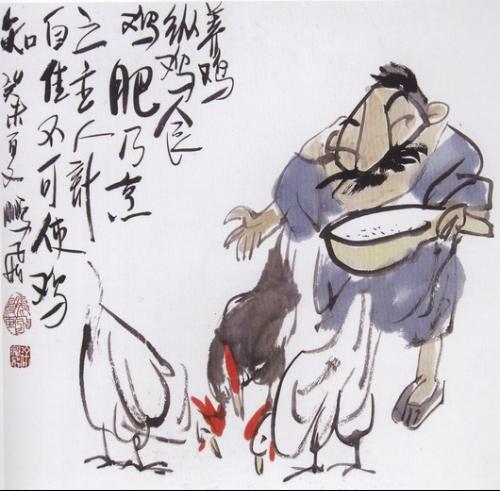 养鸡
纵鸡食
鸡肥乃烹
之主人計
自佳不可使鸡
知 癸未夏